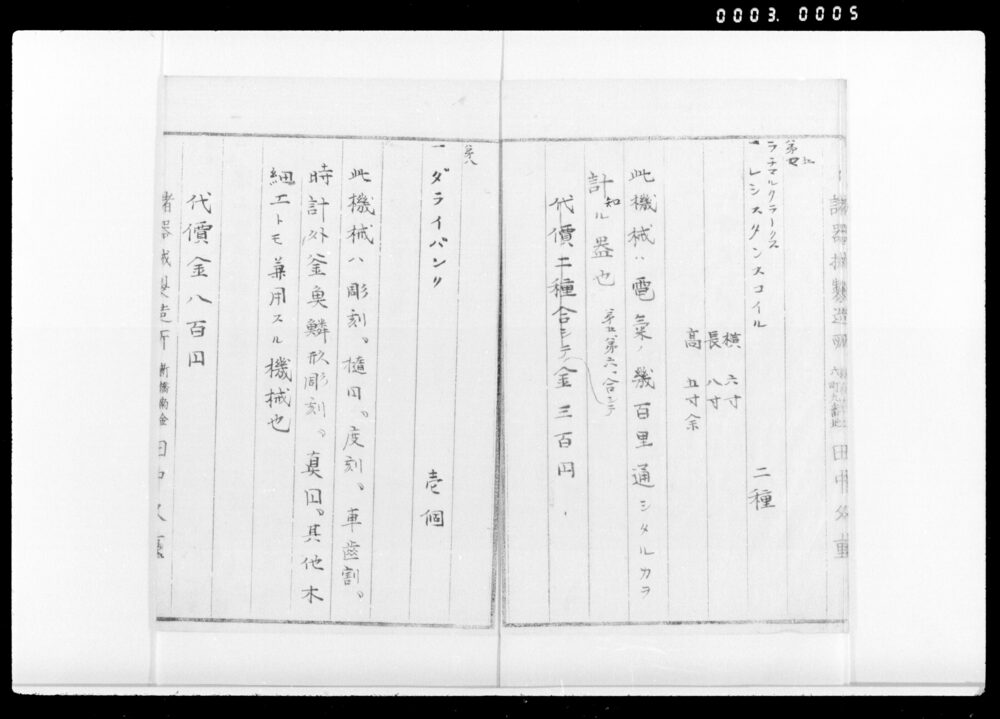 0003. 0005
諸器械製造所 田中久重
第七
ラチマルクラークス
一レシスタンスコイル 二種
横 六寸
長 八寸
高 五寸余
此機械ハ電氣ノ幾百里通シタルカヲ
計知ル器也
第五第六合シテ
代價二種合シテ金三百円
第八
一ダライバンク 壱個
此機械ハ彫刻。橢円。度刻。車齒割。
時計外釜魚鱗形彫刻。真円。其他木
細工トモ兼用スル機械也
代價金八百円
諸器械製造所 新橋南金 田中久重